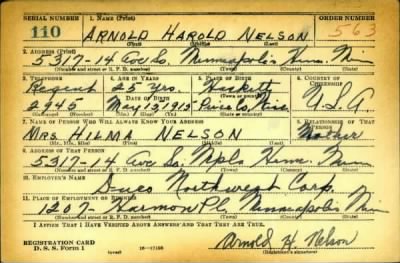 SERIAL NUMBER 1. NAME (Print) ORDER NUMBER
110 ARNOLD HAROLD NELSON 563
(First) (Middle) (Last)
2. ADDRESS (Print)
5317-14 Ave So. Minneapolis Henn. Minn
(Number and street or R. F. D. number) (Town) (County) (State)
3. TELEPHONE 4. AGE IN YEARS 5. PLACE OF BIRTH 6. COUNTRY OF CITIZENSHIP
Regent 25 yrs.
DATE OF BIRTH
2945 May 13, 1915 U.S.A.
(Exchange) (Number) (Mo.) (Day) (Yr.) (Town or county) (State or country)
7. NAME OF PERSON WHO WILL ALWAYS KNOW YOUR ADDRESS 8. RELATIONSHIP OF THAT PERSON
MRS. HILMA NELSON Mother
(Mr., Mrs., Miss) (First) (Middle) (Last)
9. ADDRESS OF THAT PERSON
5317-14 Ave So. Mpls Henn. Minn
(Number and street or R. F. D. number) (Town) (County) (State)
10. EMPLOYER'S NAME
Northwest Corp.
11. PLACE OF EMPLOYMENT OR BUSINESS
1207- Harmon Pl. Minneapolis Minn
(Number and street or R. F. D. number) (Town) (County) (State)
I AFFIRM THAT I HAVE VERIFIED ABOVE ANSWERS AND THAT THEY ARE TRUE.
REGISTRATION CARD
D. S. S. Form 1 (over) 16-17105 Arnold H. Nelson